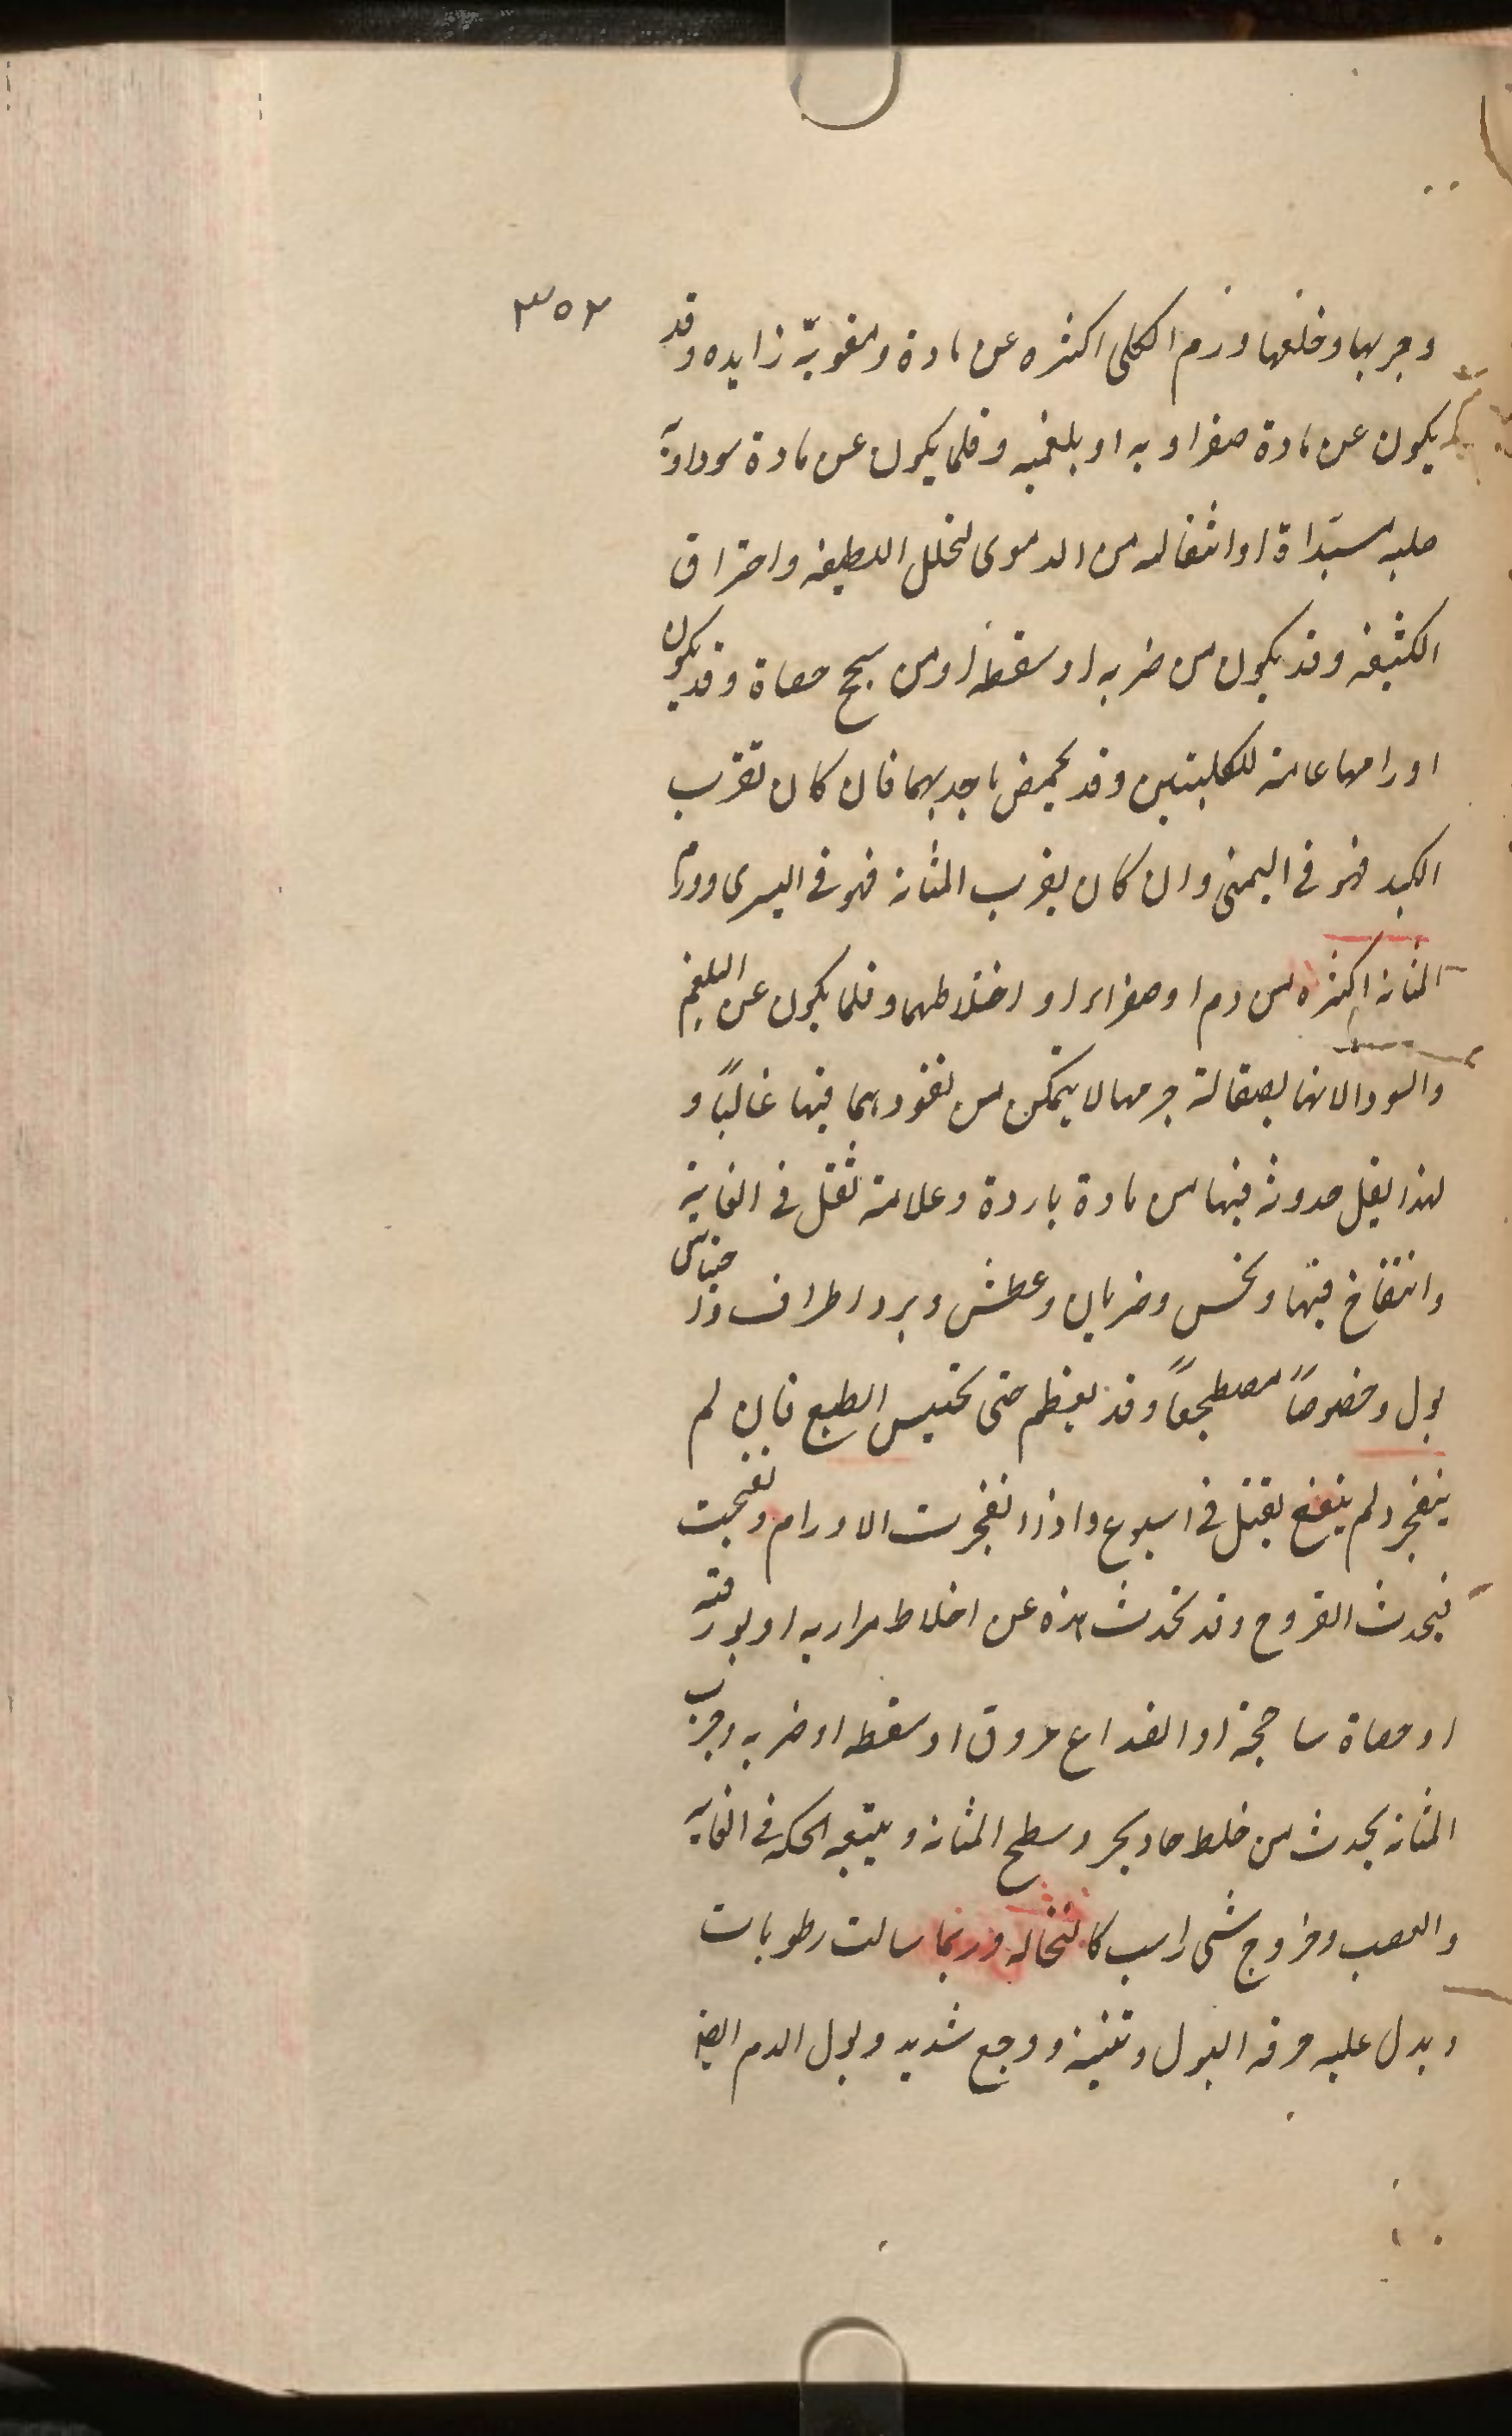 ٣٥٢
وجربها وخلعها ورم الكلى اكثره عن مادة دمفويّة زايده وقد
يكون عن مادة صفراويه او بلغميه وقلما يكون عن مادة سوداويّة
صلبه مبتداة او انتقاله من الدموى لتحلل اللطيفه واحتراق
الكثيفه وقد يكون من ضربه او سقطه او من سحج حصاة وقد يكون
اورامها عامة للكليتين وقد يختص باحديهما فان كان بقرب
الكبد فهو فى اليمنى وان كان بقرب المثانه فهو فى اليسرى وورم
المثانه اكثره من دم او صفراء او اختلاطهما وقلما يكون عن البلغم
والسودا لانها لصقالة جرمها لا يتمكن من نفودهما فيها غالبًا و
لهذا يقل حدوثه فيها من مادة باردة وعلامته ثقل فى العانة
وانتفاخ فيها ونخس وضربان وعطش وبرد اطراف واحتباس
بول وخصوصاً مصطجعاً وقد يعظم حتى يحتبس الطبع فان لم
ينفجر ولم ينضج يقتل فى اسبوع واذا انفجرت الاورام ونضجت
فيحدث القروح وقد تحدث هذه عن اخلاط مراريه او بورقيه
او حصاة ساحجة او انصداع عروق او سقطه او ضربه وجرب
المثانه يحدث من خلط حاد يجرد سطح المثانه ويتبعه الحكه فى العانه
والقضيب وخروج شى راسب كالنخاله وربما سالت رطوبات
ويدل عليه حرقه البول ونتنه ووجع شديد وبول الدم ايضا